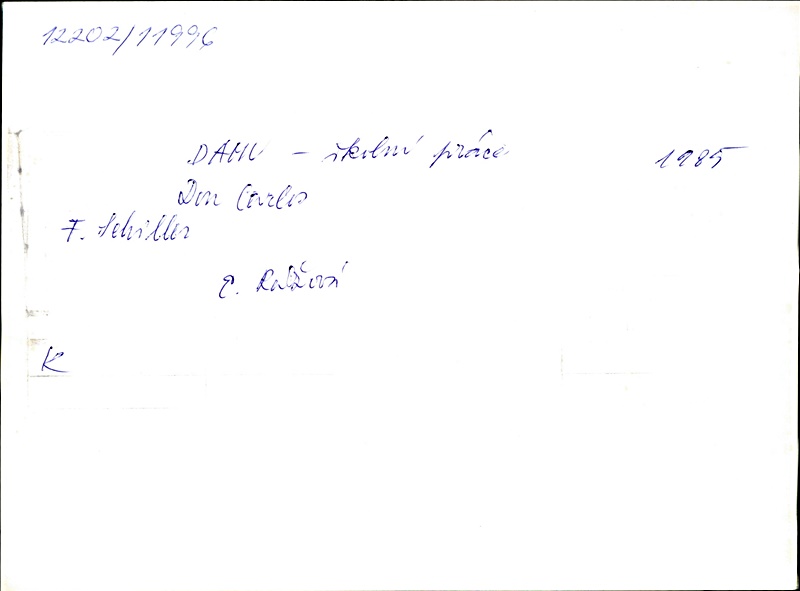 12202/11996
DAMU – školní práce 1985
Don Carlos
F. Schiller
K